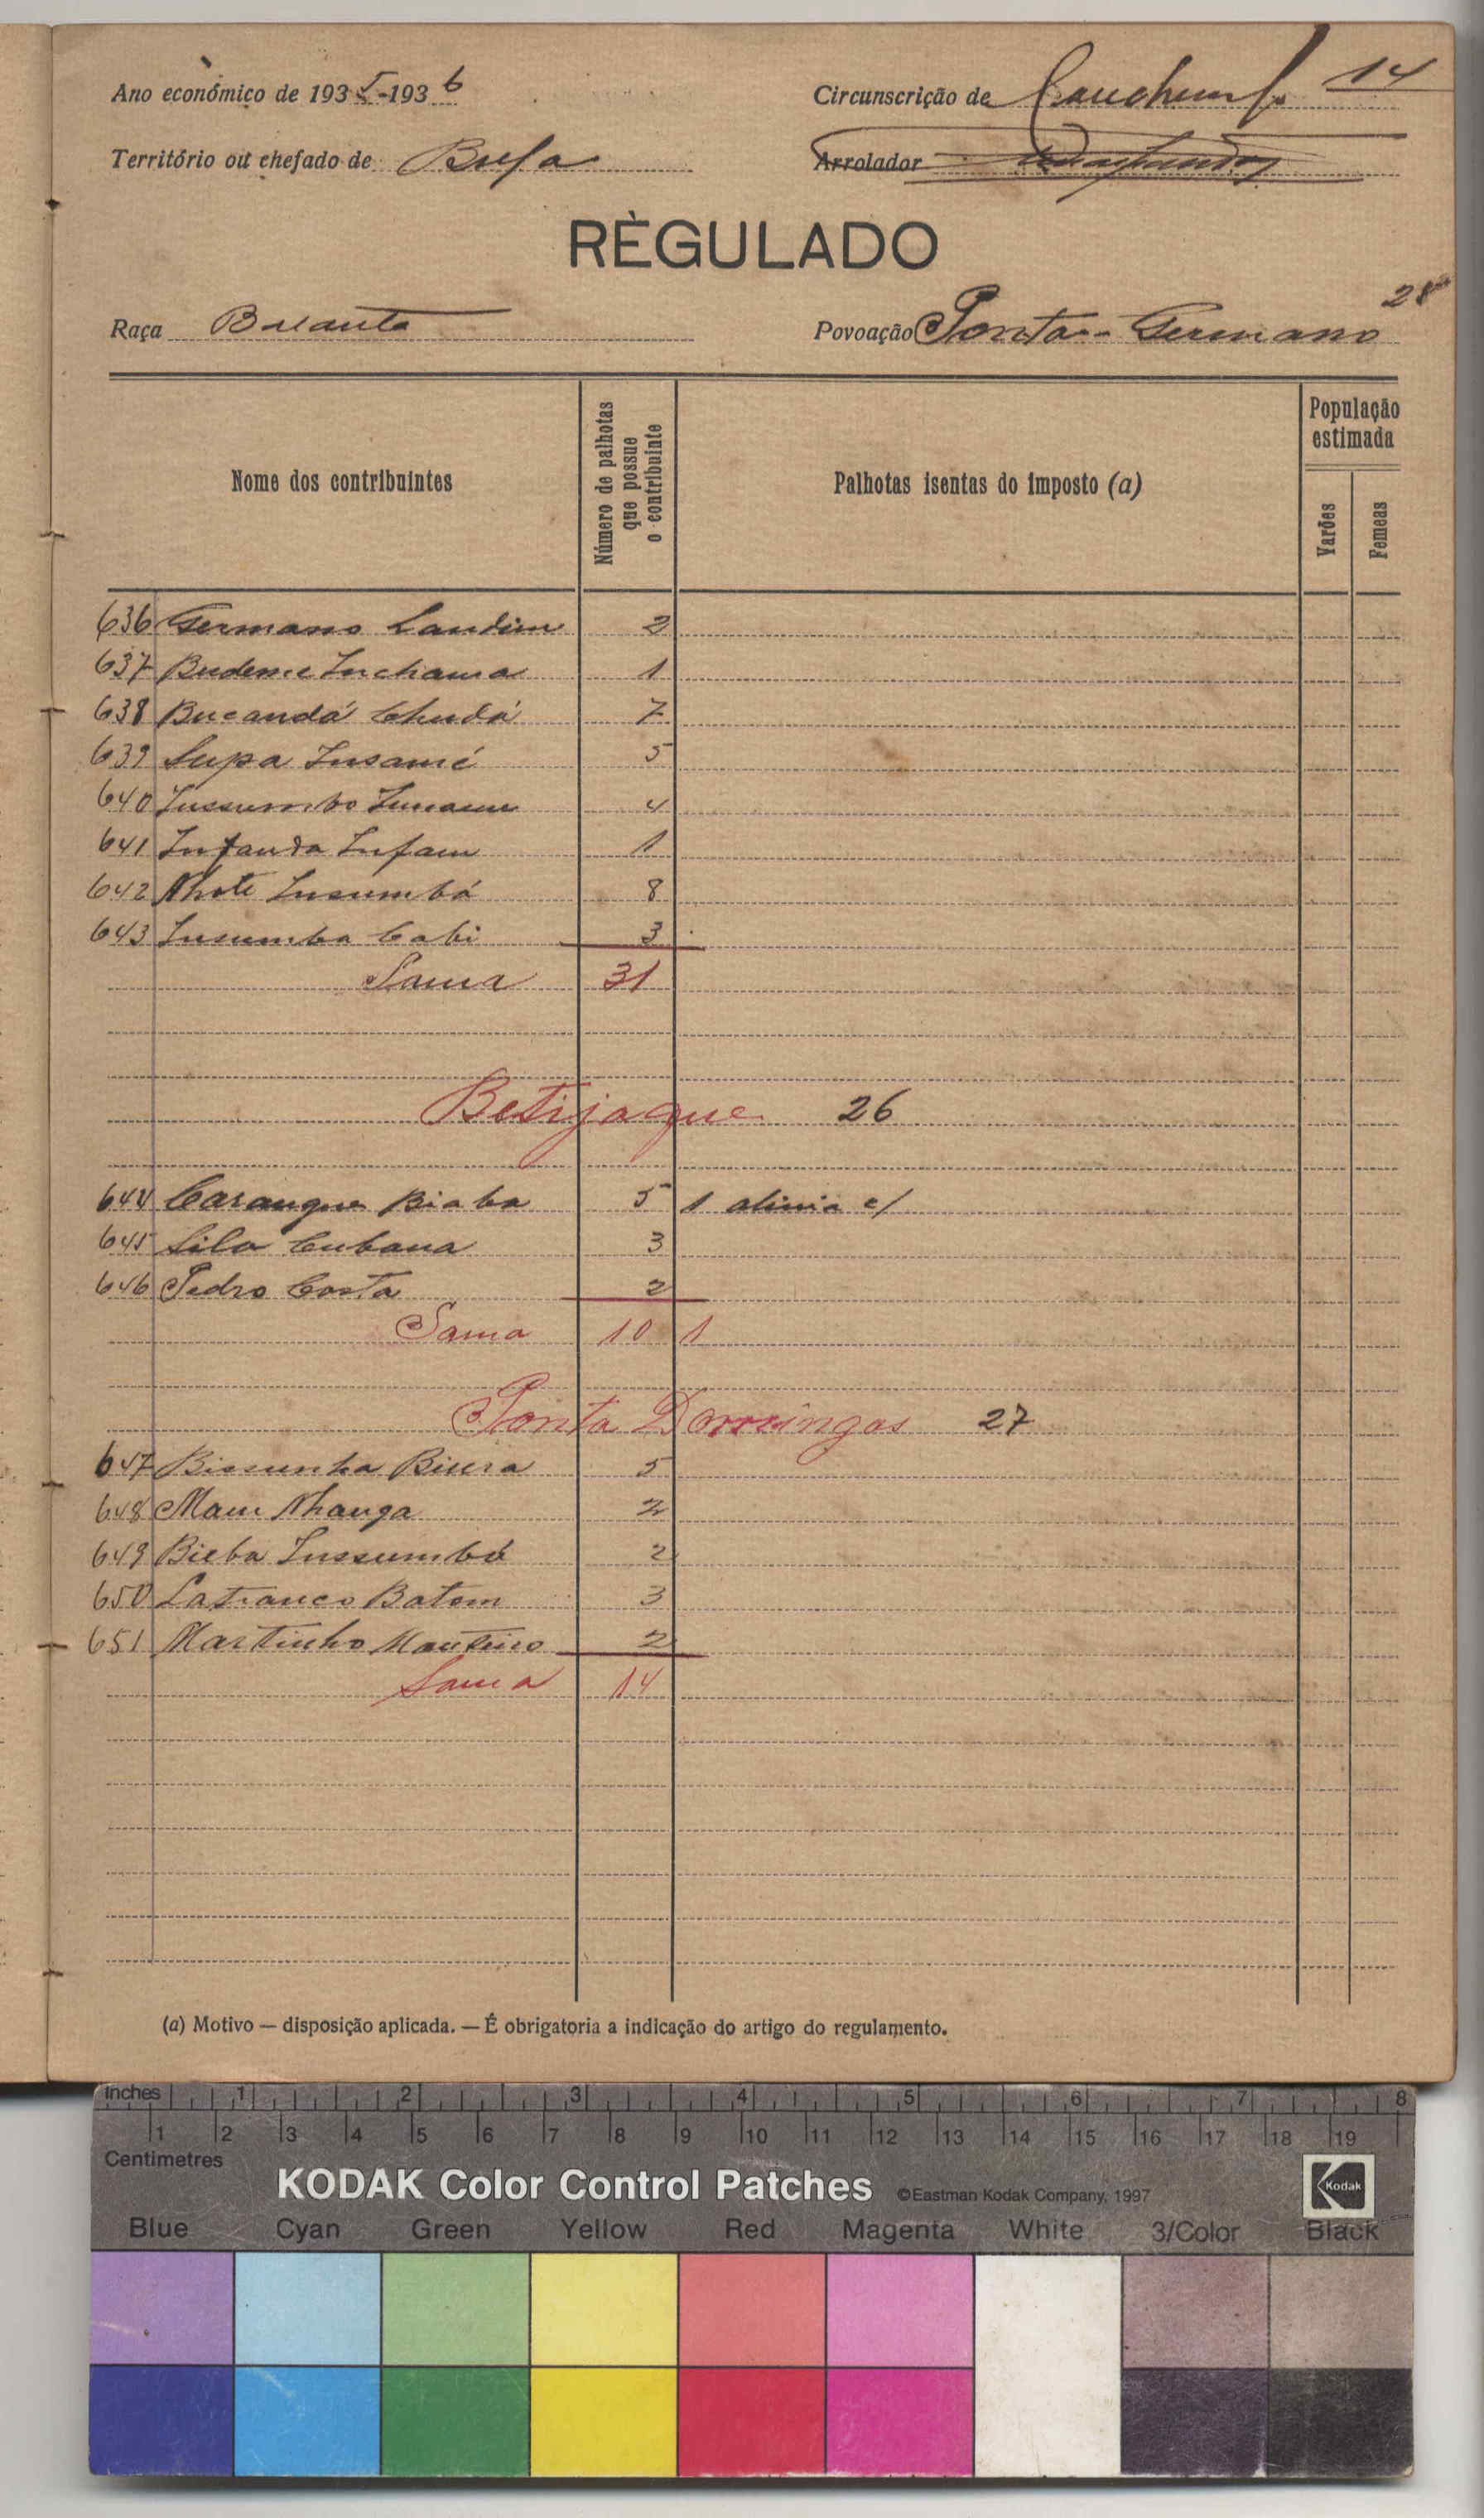 Ano económico de 1935-1936
Circunscrição de 14
Território ou chefado de Bula
Arrolador
RÈGULADO
Raça
28
Povoação Ponta-Germano
Nome dos contribuintes
Número de palhotas que possue o contribuinte
Palhotas isentas do imposto (a)
População estimada
Varões
Femeas
636 Germano Landim 2
637 1
638 Bucandá Chudá 7
639 Lupa Insamé 5
640 4
641 Infanda 1
642 Nhoté Insumbá 8
643 Insumba Cabi 3
Soma 31
Betijaque 26
644 Carangue Biaba 5 1 alinia c/
645 Lila 3
646 Pedro Costa 2
Soma 10 1
Ponta Domingos 27
647 5
648 Nhanga 2
649 Bieba Inssumbá 2
650 Batom 3
651 Martinho Monteiro 2
Soma 14
(a) Motivo — disposição aplicada. — É obrigatoria a indicação do artigo do regulamento.
Inches 1 2 3 4 5 6 7 8
1 2 3 4 5 6 7 8 9 10 11 12 13 14 15 16 17 18 19
Centimetres
KODAK Color Control Patches ©Eastman Kodak Company, 1997 Kodak
Blue Cyan Green Yellow Red Magenta White 3/Color Black